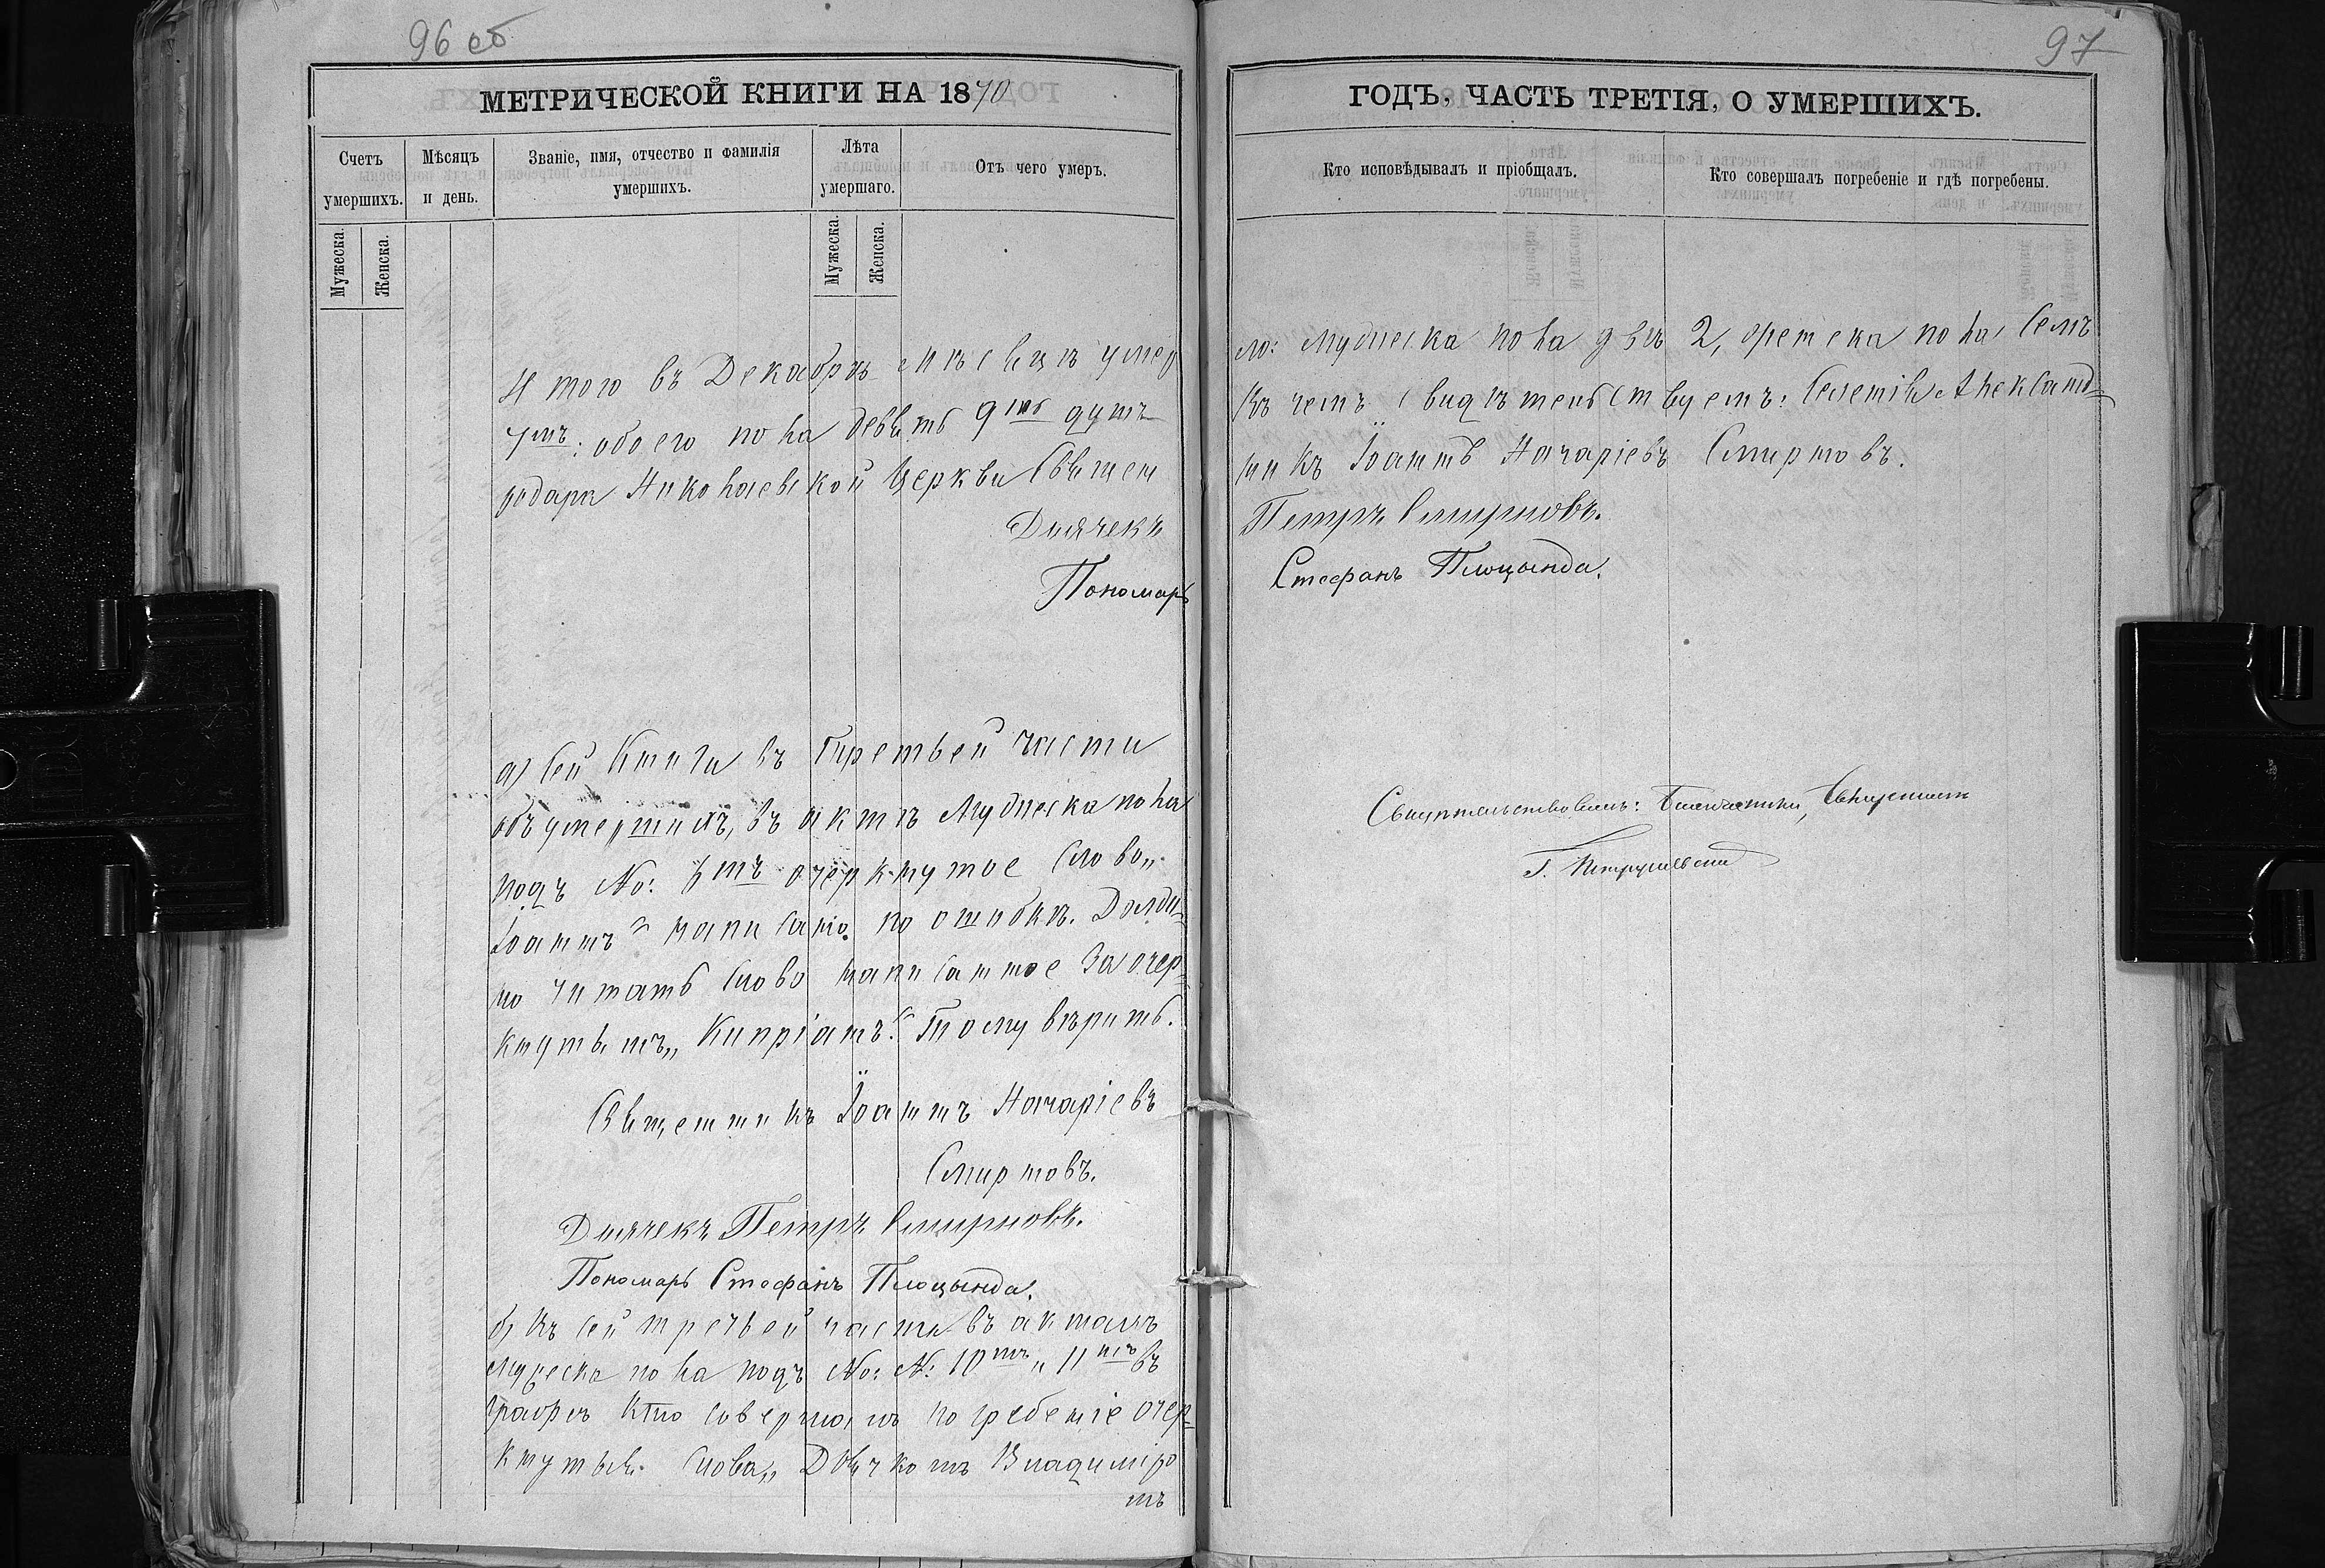 96 об
МЕТРИЧЕСКОЙ КНИГИ НА 1870
Счетъ умершихъ.
Мѣсяцъ и день.
Званіе, имя, отчество и фамилія умершихъ.
Лѣта умершаго.
Отъ чего умеръ.
Мужеска.
Женска.
Мужеска.
Женска.
И того въ Декабрѣ мѣсяцѣ умер
обоего пола девять 9ть душъ
Николаевской Церкви Священ
Дьячекъ
Пономарь
а) Сей Книги въ третьей части
объ умершихъ, въ актѣ Мужеска пола
подъ No: очеркнутое слово„
Іоаннъ“ написано по ошибкѣ. Должно
но читать слово написанное за очер=
кнутымъ„ Кипріанъ.“ Тому вѣрить.
Священникъ Іоаннъ Назаріевъ
Смирновъ.
Дьячекъ Петръ Смирновъ.
Пономарь Стефанъ Плоцында.
б) Въ сей третьей части въ актахъ
мужеска пола подъ No: N: 10мъ „ 11мъ въ
графѣ кто совершалъ погребеніе очер=
кнутыя слова„ Дьячкомъ Владимиро
мъ
97
ГОДЪ, ЧАСТЬ ТРЕТІЯ, О УМЕРШИХЪ.
Кто исповѣдывалъ и пріобщалъ.
Кто совершалъ погребеніе и гдѣ погребены.
ло: Мужеска пола двѣ 2, женска пола семъ
Въ чемъ свидѣтельствуемъ:
никъ Іоаннъ Назаріевъ Смирновъ.
Петръ Смирновъ.
Стефанъ Плоцында.
Свидѣтельствовалъ: Благочинный, Священникъ
Г.